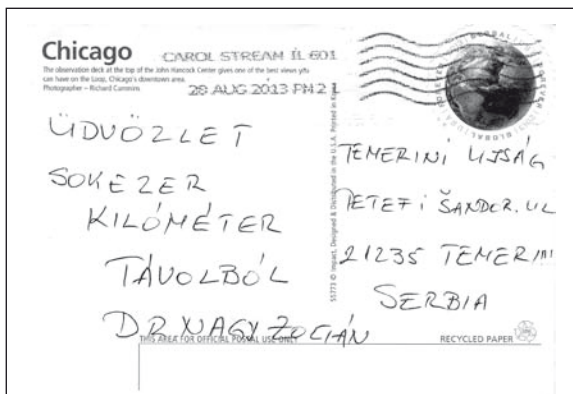 Chicago
The observation deck at the top of the John Hancock Center gives one of the best views you
can have on the Loop, Chicago's downtown area.
Photographer – Richard Cummins
CAROL STREAM IL 601
28 AUG 2013 PM 2 L
ÜDVÖZLET
SOKEZER
KILÓMÉTER
TÁVOLBÓL
DR NAGY ZOLTÁN
55773 © Impact, Designed & Distributed in the U.S.A. Printed in Korea
GLOBAL FOREVER
TEMERINI UJSÁG
PETEFI ŠANDOR. UL
21235 TEMERIN
SERBIA
THIS AREA FOR OFFICIAL POSTAL USE ONLY
RECYCLED PAPER